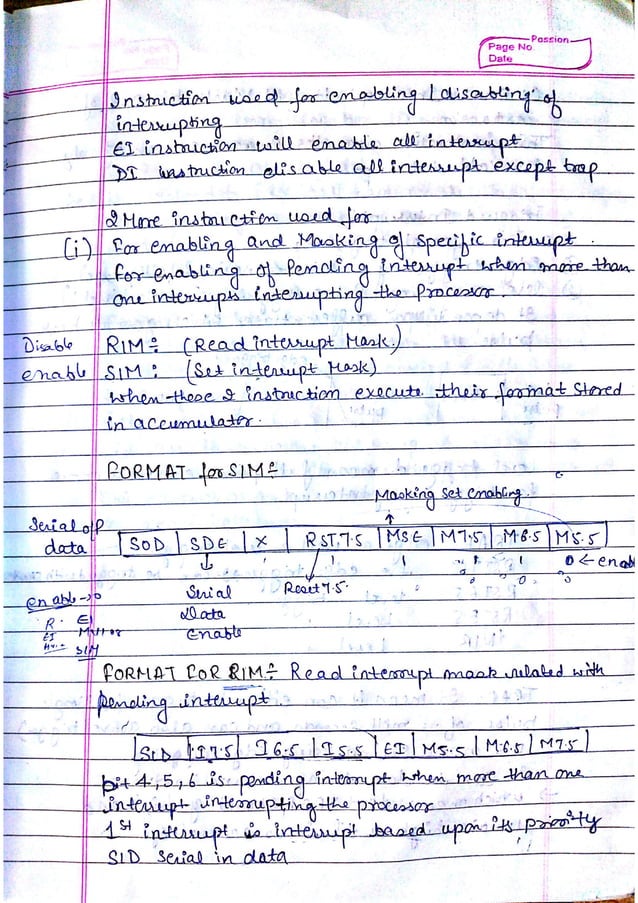 Passion
Page No.
Date
Instruction used for enabling / disabling of
interrupting
EI instruction will enable all interrupt
DI instruction disable all interrupt except trap
2 More instruction used for
(i) For enabling and Masking of specific interrupt.
For enabling of Pending interrupt when more than
one interrupts interrupting the Processor.
Disable RIM: (Read interrupt Mask.)
enable SIM: (Set interrupt Mask)
when these 2 instruction execute their format stored
in accumulator.
FORMAT for SIM:
Masking set enabling.
Serial o/p
data
SOD | SDE | X | RST 7.5 | MSE | M7.5 | M6.5 | M5.5
1 1 1 0 ← enab
enable → 0 Serial Reset 7.5
R. EI Data
EI Enable
SIM
FORMAT FOR RIM: Read interrupt mask related with
pending interrupt
SID | I7.5 | I6.5 | I5.5 | EI | M5.5 | M6.5 | M7.5
bit 4, 5, 6 is pending interrupt when more than one
interrupt interrupting the processor
1st interrupt is interrupt based upon its priority
SID Serial in data